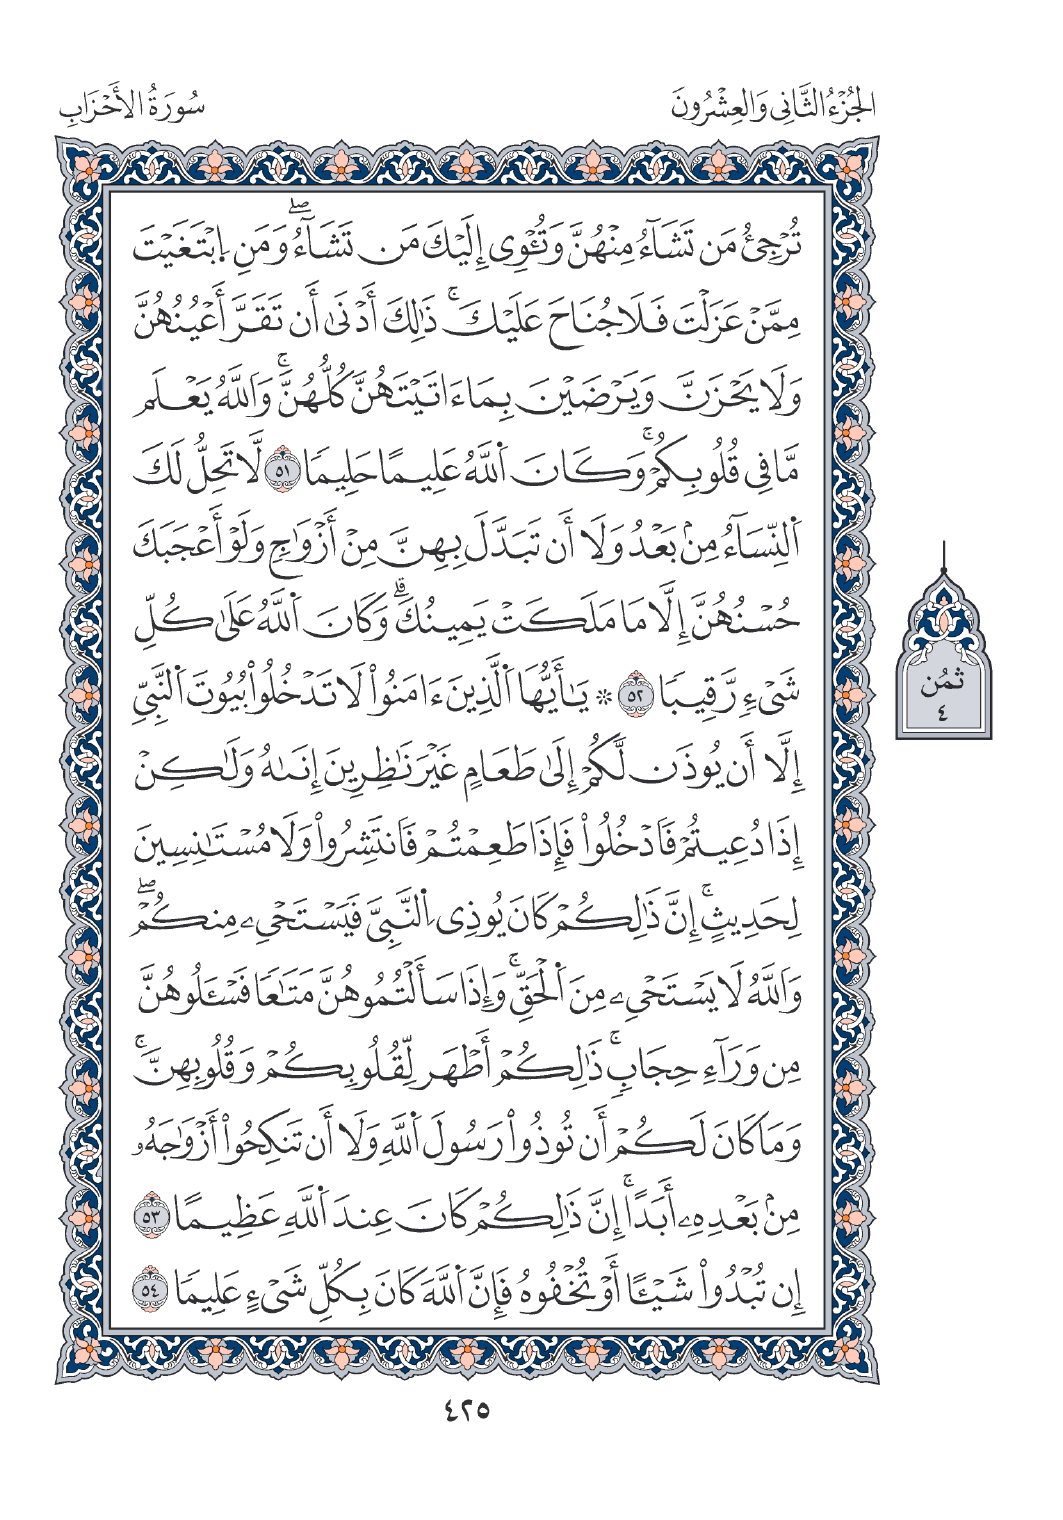 الجُزْءُ الثَّانِي وَالعِشْرُونَ
سُورَةُ الأَحْزَابِ
تُرْجِئُ مَن تَشَآءُ مِنْهُنَّ وَتُـْٔوِي إِلَيْكَ مَن تَشَآءُۖ وَمَنِ اِبْتَغَيْتَ
مِمَّنْ عَزَلْتَ فَلَا جُنَاحَ عَلَيْكَۚ ذَٰلِكَ أَدْنَىٰ أَن تَقَرَّ أَعْيُنُهُنَّ
وَلَا يَحْزَنَّ وَيَرْضَيْنَ بِمَا ءَاتَيْتَهُنَّ كُلُّهُنَّۚ وَاَللَّهُ يَعْلَم
مَّا فِي قُلُوبِكُمْۚ وَكَانَ اَللَّهُ عَلِيمًا حَلِيمٗا ٥١ لَّا تَحِلُّ لَكَ
اَلنِّسَآءُ مِنۢ بَعْدُ وَلَا أَن تَبَدَّلَ بِهِنَّ مِنْ أَزْوَٰجٖ وَلَوْ أَعْجَبَكَ
حُسْنُهُنَّ إِلَّا مَا مَلَكَتْ يَمِينُكَۗ وَكَانَ اَللَّهُ عَلَىٰ كُلِّ
شَيْءٖ رَّقِيبٗا ٥٢ ۞ يَـٰٓأَيُّهَا اَلَّذِينَ ءَامَنُواْ لَا تَدْخُلُواْ بُيُوتَ اَلنَّبِيِّ
إِلَّا أَن يُوذَن لَّكُمْ إِلَىٰ طَعَامٍ غَيْرَ نَٰظِرِينَ إِنَىٰهُ وَلَٰكِنْ
إِذَا دُعِيتُمْ فَادْخُلُواْ فَإِذَا طَعِمْتُمْ فَانتَشِرُواْ وَلَا مُسْتَـٰنِسِينَ
لِحَدِيثٍۚ إِنَّ ذَٰلِكُمْ كَانَ يُوذِي اِلنَّبِيَّ فَيَسْتَحْيِۦ مِنكُمْۖ
وَاَللَّهُ لَا يَسْتَحْيِۦ مِنَ اَلْحَقِّۚ وَإِذَا سَأَلْتُمُوهُنَّ مَتَٰعٗا فَسْـَٔلُوهُنَّ
مِن وَرَآءِ حِجَابٖۚ ذَٰلِكُمْ أَطْهَر لِّقُلُوبِكُمْ وَقُلُوبِهِنَّۚ
وَمَا كَانَ لَكُمْ أَن تُوذُواْ رَسُولَ اَللَّهِ وَلَا أَن تَنكِحُواْ أَزْوَٰجَهُۥ
مِنۢ بَعْدِهِۦ أَبَدًاۚ إِنَّ ذَٰلِكُمْ كَانَ عِندَ اَللَّهِ عَظِيمًا ٥٣
إِن تُبْدُواْ شَيْـًٔا أَوْ تُخْفُوهُ فَإِنَّ اَللَّهَ كَانَ بِكُلِّ شَيْءٍ عَلِيمٗا ٥٤
ثمُن
٤
٤٢٥